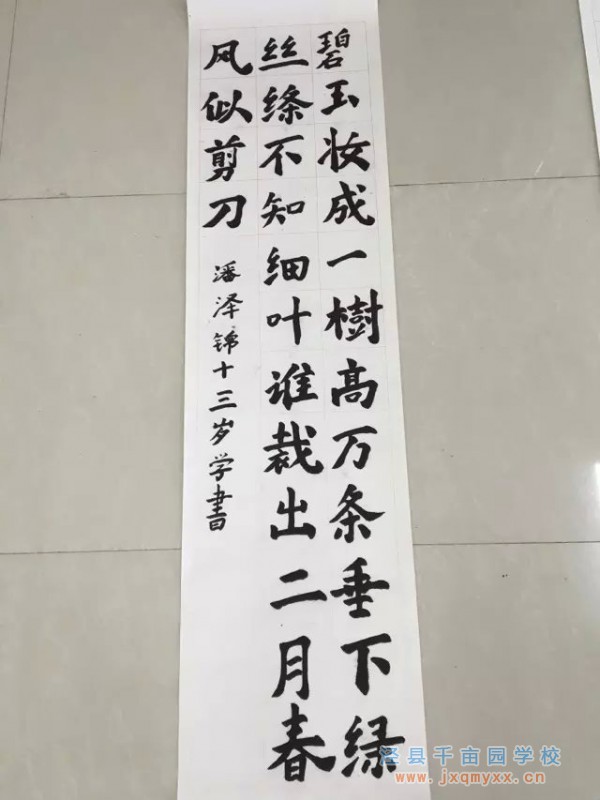 碧玉妆成一樹高万条垂下绿
丝绦不知细叶谁裁出二月春
风似剪刀
潘泽锦十三岁学書
泾县千亩园学校
www.jxqmyxx.cn